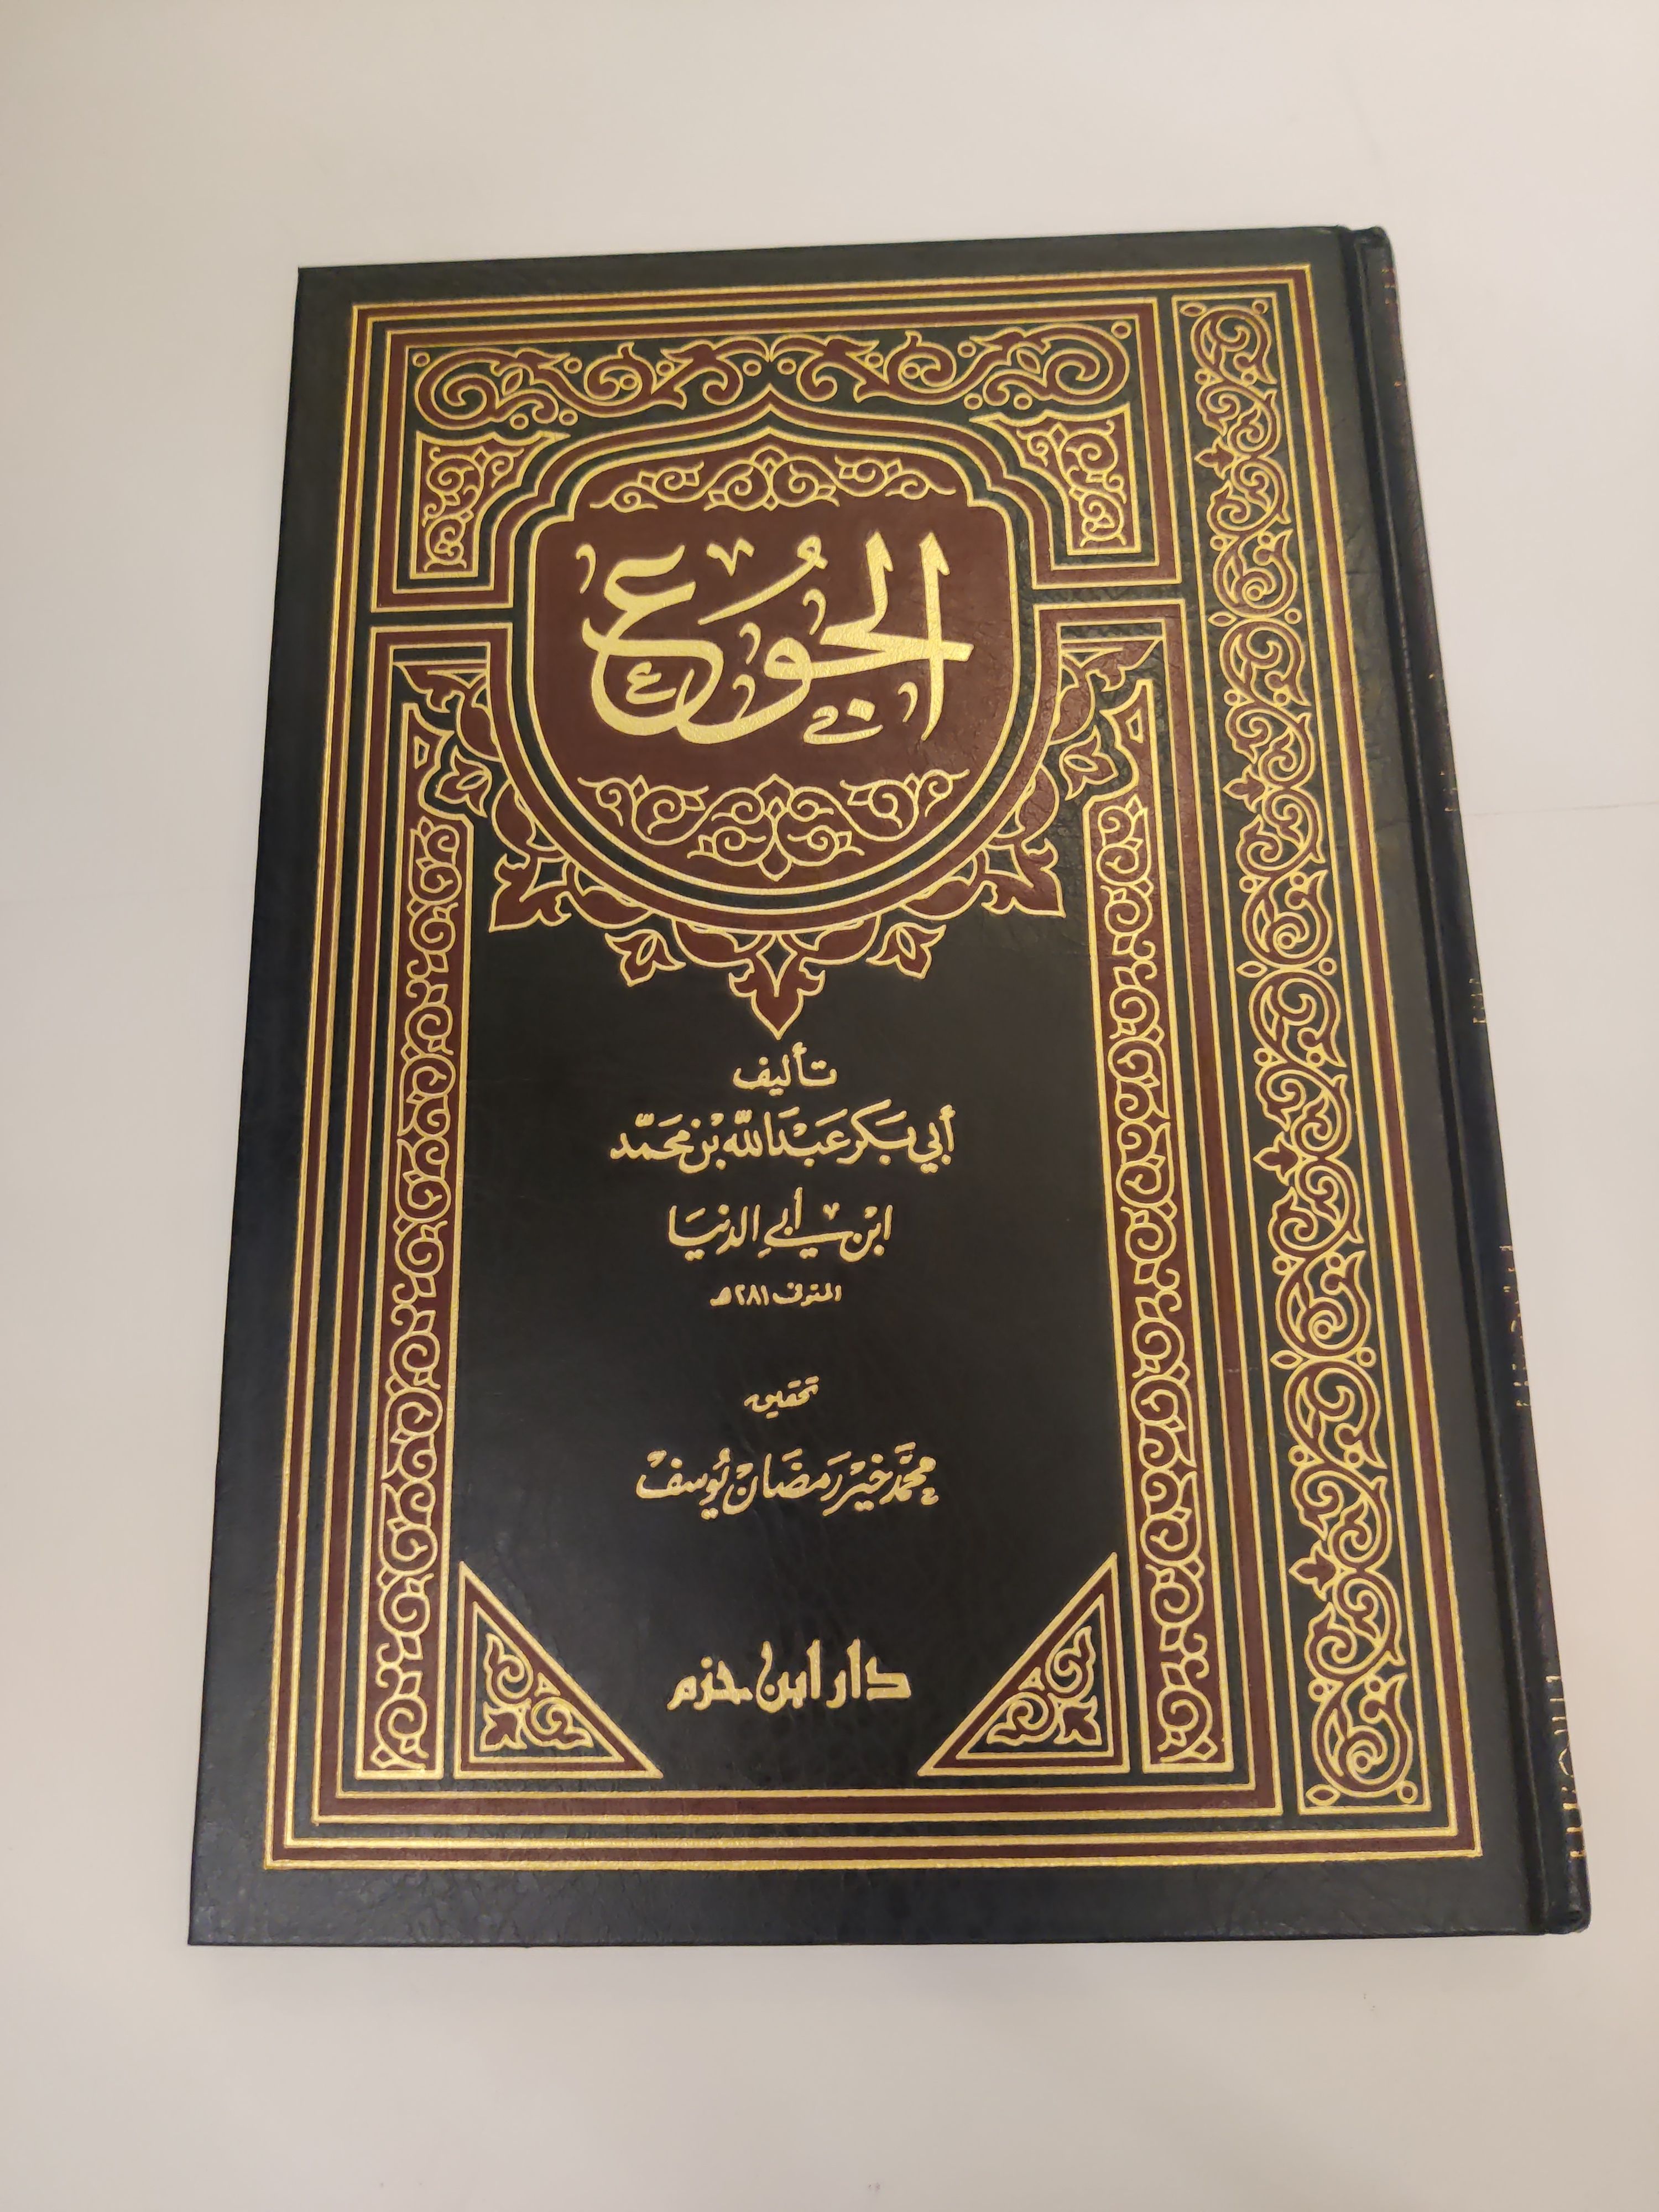 الجوع
تأليف
أبي بكر عبد الله بن محمد
ابن أبي الدنيا
المتوفى ٢٨١هـ
تحقيق
محمد خير رمضان يوسف
دار ابن حزم